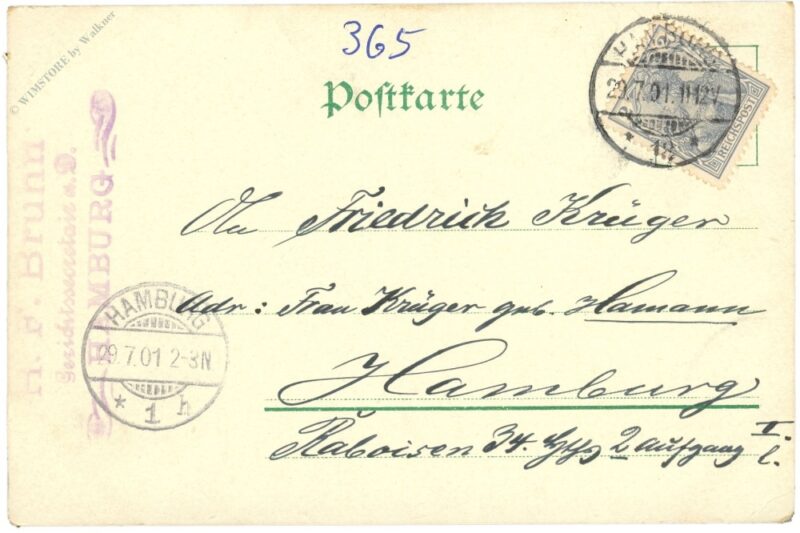 © WIMSTORE by Walkner
365
Postkarte
HAMBURG
29.7.01. 11-12V
* 1a *
REICHSPOST
H. F. Brunn
Gerichtssecretair a. D.
HAMBURG
An Friedrich Krüger
Adr: Frau Krüger geb. Hamann
HAMBURG
29.7.01 2-3N
* 1 h
Hamburg
Raboisen 34. 2 Aufgang II
l.